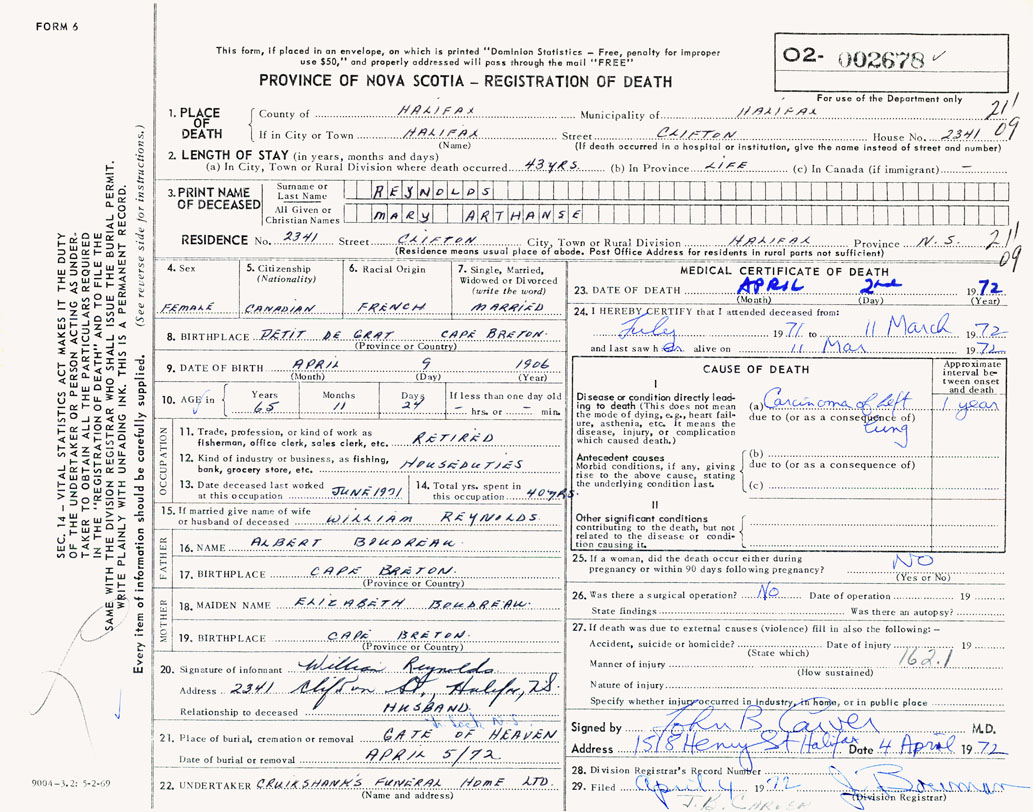 FORM 6
This form, if placed in an envelope, on which is printed "Dominion Statistics – Free, penalty for improper
use $50," and properly addressed will pass through the mail "FREE"
PROVINCE OF NOVA SCOTIA – REGISTRATION OF DEATH
O2- 002678
For use of the Department only
1. PLACE OF DEATH
County of HALIFAX Municipality of HALIFAX 21
If in City or Town HALIFAX Street CLIFTON House No. 2341 09
(Name) (If death occurred in a hospital or institution, give the name instead of street and number)
2. LENGTH OF STAY (in years, months and days)
(a) In City, Town or Rural Division where death occurred 43 YRS. (b) In Province LIFE (c) In Canada (if immigrant) –
3. PRINT NAME OF DECEASED
Surname or Last Name REYNOLDS
All Given or Christian Names MARY ARTHANSE
RESIDENCE No. 2341 Street CLIFTON City, Town or Rural Division HALIFAX Province N.S. 21
(Residence means usual place of abode. Post Office Address for residents in rural parts not sufficient) 09
4. Sex FEMALE
5. Citizenship (Nationality) CANADIAN
6. Racial Origin FRENCH
7. Single, Married, Widowed or Divorced (write the word) MARRIED
8. BIRTHPLACE PETIT DE GRAT CAPE BRETON.
(Province or Country)
9. DATE OF BIRTH APRIL 9 1906
(Month) (Day) (Year)
10. AGE in Years 65 Months 11 Days 24 If less than one day old – hrs. or – min.
OCCUPATION
11. Trade, profession, or kind of work as
fisherman, office clerk, sales clerk, etc. RETIRED
12. Kind of industry or business, as fishing,
bank, grocery store, etc. HOUSEDUTIES
13. Date deceased last worked
at this occupation JUNE 1971
14. Total yrs. spent in
this occupation 40 YRS.
15. If married give name of wife
or husband of deceased WILLIAM REYNOLDS.
FATHER
16. NAME ALBERT BOUDREAU.
17. BIRTHPLACE CAPE BRETON.
(Province or Country)
MOTHER
18. MAIDEN NAME ELIZABETH BOUDREAU.
19. BIRTHPLACE CAPE BRETON.
(Province or Country)
20. Signature of informant William Reynolds
Address 2341 Clifton St., Halifax, N.S.
Relationship to deceased HUSBAND.
21. Place of burial, cremation or removal GATE OF HEAVEN
Date of burial or removal APRIL 5/72
22. UNDERTAKER CRUIKSHANK'S FUNERAL HOME LTD.
(Name and address)
MEDICAL CERTIFICATE OF DEATH
23. DATE OF DEATH APRIL 2nd 1972
(Month) (Day) (Year)
24. I HEREBY CERTIFY that I attended deceased from:
July 1971 to 11 March 1972
and last saw her alive on 11 Mar 1972
CAUSE OF DEATH
Approximate interval between onset and death
I
Disease or condition directly leading to death (This does not mean the mode of dying, e.g., heart failure, asthenia, etc. It means the disease, injury, or complication which caused death.)
(a) Carcinoma of Left 1 year
due to (or as a consequence of)
Lung
Antecedent causes
Morbid conditions, if any, giving rise to the above cause, stating the underlying condition last.
(b)
due to (or as a consequence of)
(c)
II
Other significant conditions
contributing to the death, but not related to the disease or condition causing it.
25. If a woman, did the death occur either during
pregnancy or within 90 days following pregnancy? NO
(Yes or No)
26. Was there a surgical operation? No Date of operation 19
State findings Was there an autopsy?
27. If death was due to external causes (violence) fill in also the following: –
Accident, suicide or homicide? Date of injury 19
(State which) 162.1
Manner of injury
(How sustained)
Nature of injury
Specify whether injury occurred in industry, in home, or in public place
Signed by John B Carver M.D.
Address 1518 Henry St Halifax Date 4 April 1972
28. Division Registrar's Record Number
29. Filed April 4 1972
(Division Registrar)
SEC. 14 – VITAL STATISTICS ACT MAKES IT THE DUTY
OF THE UNDERTAKER OR PERSON ACTING AS UNDER-
TAKER TO OBTAIN ALL THE PARTICULARS REQUIRED
IN THE "REGISTRATION OF DEATH" AND TO FILE THE
SAME WITH THE DIVISION REGISTRAR WHO SHALL ISSUE THE BURIAL PERMIT.
WRITE PLAINLY WITH UNFADING INK. THIS IS A PERMANENT RECORD.
Every item of information should be carefully supplied. (See reverse side for instructions.)
9004-3.2: 5-2-69